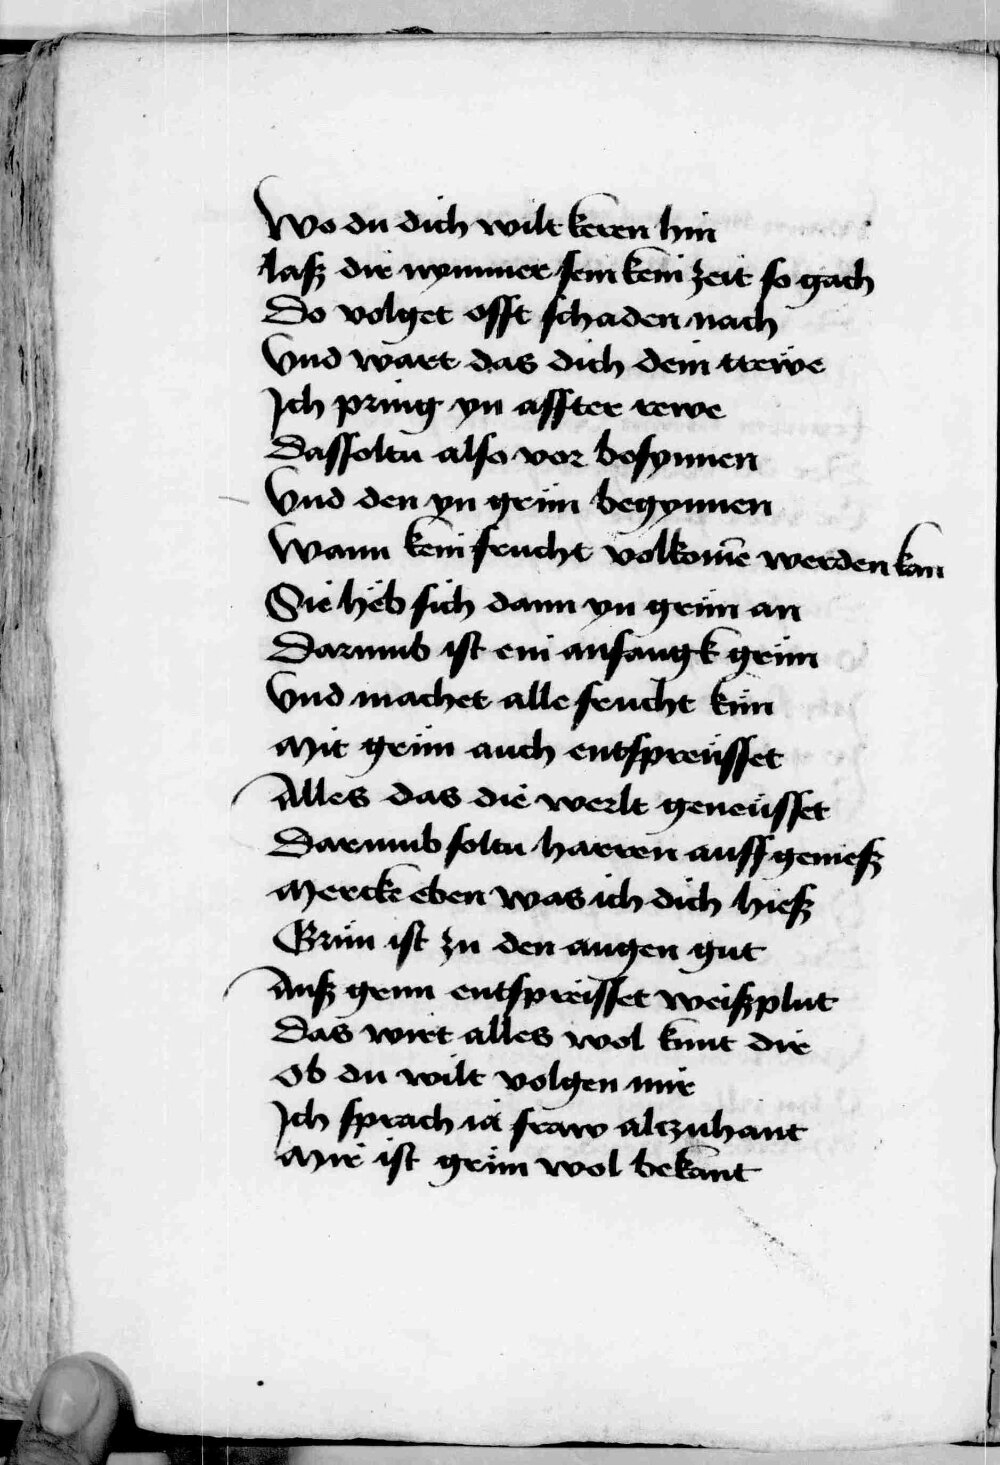 Wo du dich wilt keren hin
lasz dir nymmer sein kein zeit so gach
Do volget offt schaden nach
Vnd wart das dich dein trewe
Ich pring yn affter rewe
Das soltu also vor besynnen
Vnd den yn grün begynnen
Wann kein frucht volkomē werden kan
Sie heb sich dann yn grün an
Darumb ist ein anfangk grün
Vnd machet alle frucht kün
Mit grün auch entspreüsset
Alles das die werlt geneüsset
Darumb soltu harren auff geniesz
Mercke eben was ich dich hiesz
Grün ist zu den augen gut
Ausz grun entspreisset weisz plut
Das wirt alles wol kunt dir
Ob du wilt volgen mir
Ich sprach ia fraw alczuhant
Mir ist grün wol bekant